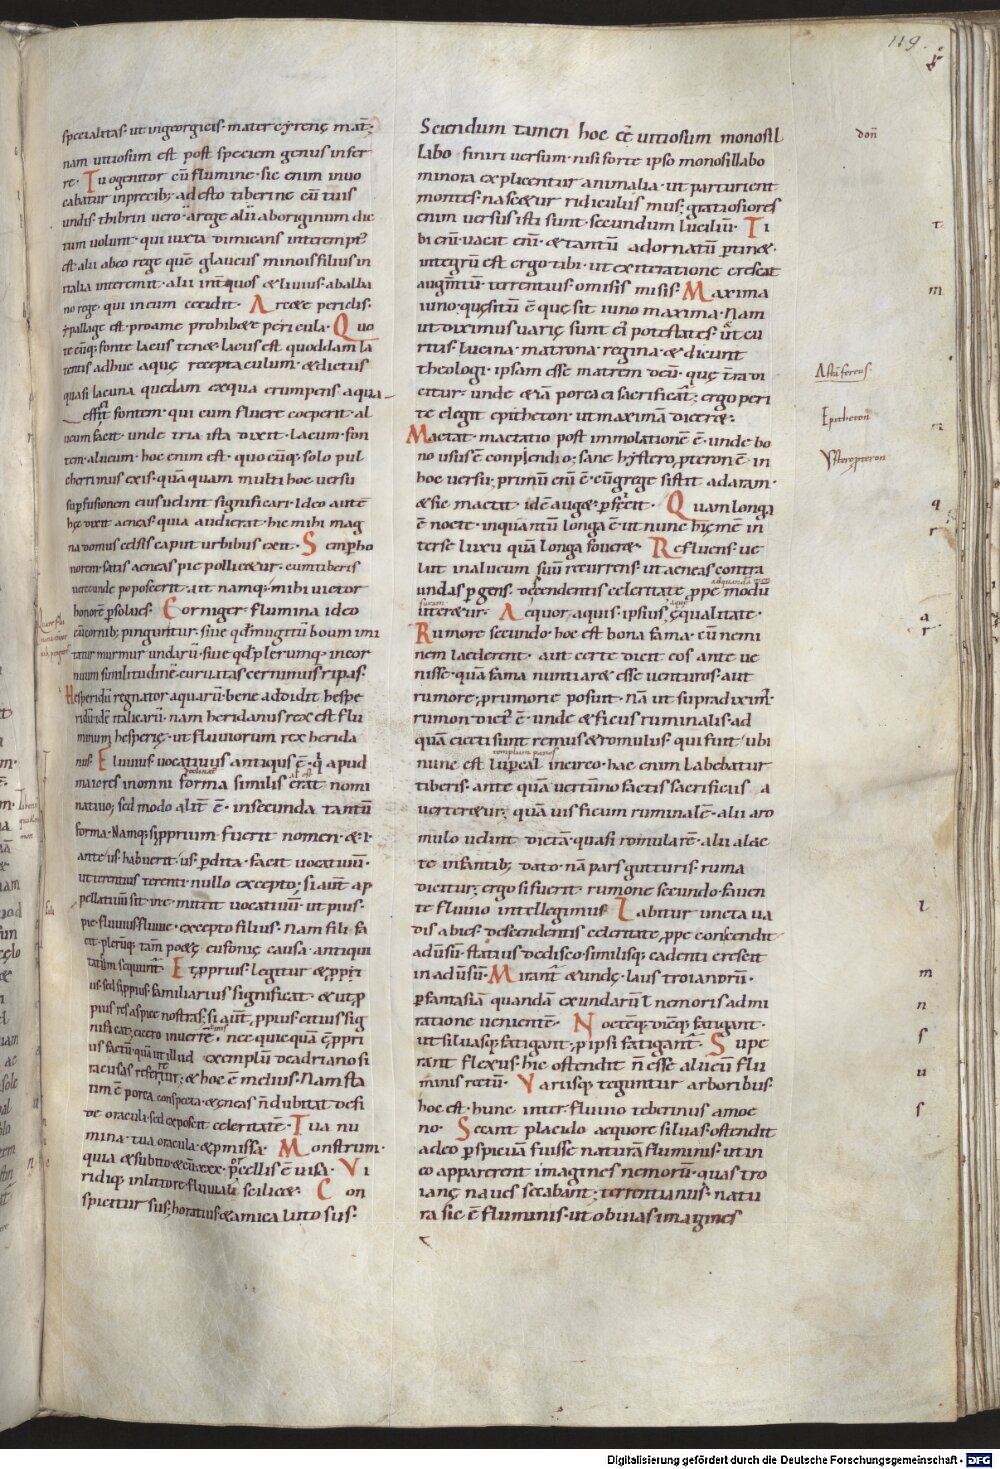 119.
specialitas. ut in georgicis. mater cyrenę mat̄;
nam uitiosum est post speciem genus infer
re. Tu o genitor cū flumine. sic enim inuo
cabatur in precib; adesto tiberine cū tuis
undis. thibrin uero. a rege alii aboriginum dic
tum uolunt. qui iuxta dimicans interempt᷒
est. alii ab eo rege quē glaucus minois filius in
italia interemit. alii int̄ quos & liuius. ab alba
no rege. qui in eum cecidit. Arc&e periclis.
ypallage est. pro a me prohib&e pericula. Quo
te cūq; fonte lacus ten&. lacus est quoddam la
tentis adhuc aquę receptaculum. & dictus
quasi lacuna quedam ex qua erumpens aqua
effīt fontem. qui cum fluere coeperit. al
ueum facit. unde tria ista dixit. lacum. fon
tem. alueum. hoc enim est. quocūq; solo pul
cherrimus exis. quāquam multi hoc uersu
supfusionem eius uelint significari. Ideo autē
hęc dixit aeneas. quia audierat. hic mihi mag
na domus celsis caput urbibus exit. Semp ho
norem. satis aeneas pie pollic&ur. cum tiberis
uerecunde poposcerit. ait namq; mihi uictor
honorē psolues. Corniger. flumina ideo
cū cornib; pinguntur. siue qđ mugitū boum imi
tatur murmur undarū. siue qđ plerumq; in cor
nuum similitudinē curuatas cernimus ripas.
Hesperidū regnator aquarū. bene addidit hespe
ridū. idē italicarū. nam heridanus rex est flu
minum hesperię. ut fluuiorum rex herida
nus. E luuius. uocatiuus antiqus ē. q̓ apud
maiores in omni forma similis erat nomi
natiuo; sed modo alit̄ ē. in secunda tantū
forma. Namq; si pprium fuerit nomen. & .i.
ante us habuerit. us pdita. facit uocatiuū.
ut terentius terenti. nullo excepto; si aūt ap
pellatiuū sit in e. mittit uocatiuū. ut pius.
pie. fluuius. fluuie. excepto filius. Nam fili. fa
cit. plerūq; tam̄ po&ę eufonię causa. antiqui
tatem sequunt̄. Et pprius. legitur & ppri
us. sed si pprius. familiarius significat. & ut p
pius res aspice nostras; si aūt ppius. citius sig
nificat; cicero in uerrē. nec quicquā ē ppri
us factū. quā ut illud exemplū de adriano si
racusas refer&ur; & hoc ē melius. Nam sta
tim ē porca conspecta. & ęneas ñ dubitat defi
de oracula. sed exposcit celeritatē. Tua nu
mina. tua oracula. & pmissa. Monstrum.
quia & subito. & cū xxx. porcellis ē uisa. Vi
ridiq; in littore. fluuiali scilic&. Con
spicitur sus; horatius & amica luto sus.
Sciendum tamen hoc eē uitiosum monosil
labo finiri uersum. nisi forte ipso monosillabo
minora explicentur animalia. ut parturient
montes nasc&ur ridiculus mus; gratiosiores
enim uersus isti sunt. secundum luciliū. Ti
bi enī. uacat enī. & tantū ad ornatū ptin&.
integrū est ergo tibi. ut ex iteratione crescat
augm̄tū. terrentius. omisis misis. Maxima
iuno. quęsitū ē quę sit iuno maxima. Nam
ut diximus. uarię sunt ei potestates. ut cu
ritis. lucina. matrona. regina. & dicunt
theologi. ipsam esse matrem deū. quę t̄ra di
citur. unde & iā porca ei sacrificat̄; ergo peri
te elegit epith&on. ut maximā dicer&;
Mactat. mactatio post immolationē ē. unde bo
no usus ē conpendio; sane hystero pteron ē. in
hoc uersu; primū enī ē. cū grege sistit ad aram.
& sic mactat idē aug& pscȓit. Quam longa
ē nocte. in quantū longa ē. ut nunc hiemē in
ter se luxu quā longa fouere. Refluens. ue
lut in alucum suū recurrens. ut aeneas contra
undas pgens. descendentis celeritate ppe modū
uteretur. Aequor aquis. ipsius ęqualitate.
Rumore secundo. hoc est bona fama. cū nemi
nem laederent. aut certe dicit eos ante ue
nisse. quā fama nuntiar& esse uenturos. aut
rumore, p rumone posuit. nā ut supra diximȝ.
rumon dictȝ ē. unde & ficus ruminalis. ad
quā eiecti sunt remus & romulus. qui fuit ubi
nunc est lupercal in circo. hac enim labebatur
tiberis. ante quā uertūno factis sacrificiis a
uerter&ur. quā uis ficum ruminalē. alii a ro
mulo uelint dictā. quasi romularē. alii a lac
te infantib; dato. nā pars gutturis. ruma
dicitur; ergo si fuerit rumone secundo. fauen
te fluuio intellegimus. Labitur uncta ua
dis abies. descendentis celeritate, ppe concendit
aduersū. statius de disco. similisq; cadenti crescit
in aduersū. Mirant̄ & undę. laus troianorū.
p fantasiā quandā ex undarū ł nemoris admi
ratione uenientē. Noctēq; diēq; fatigant.
ut siluasq; fatigant, p ipsi fatigant̄. Supe
rant flexus. hic ostendit ñ esse alueū flu
minis rectū. Variisq; teguntur arboribus.
hoc est. hunc inter. fluuio teberinus amoe
no. Secant placido aequore siluas. ostendit
adeo pspicuā fuisse naturā fluminis. ut in
eo apparerent imagines nemorū. quas tro
ianę naues secabant; terrentianus. natu
ra sic ē fluminis. ut obuias imagines
don̄
t
m
Epitheton
q
r
a
r
l
m
n
s
u
s
Digitalisierung gefördert durch die Deutsche Forschungsgemeinschaft - DFG